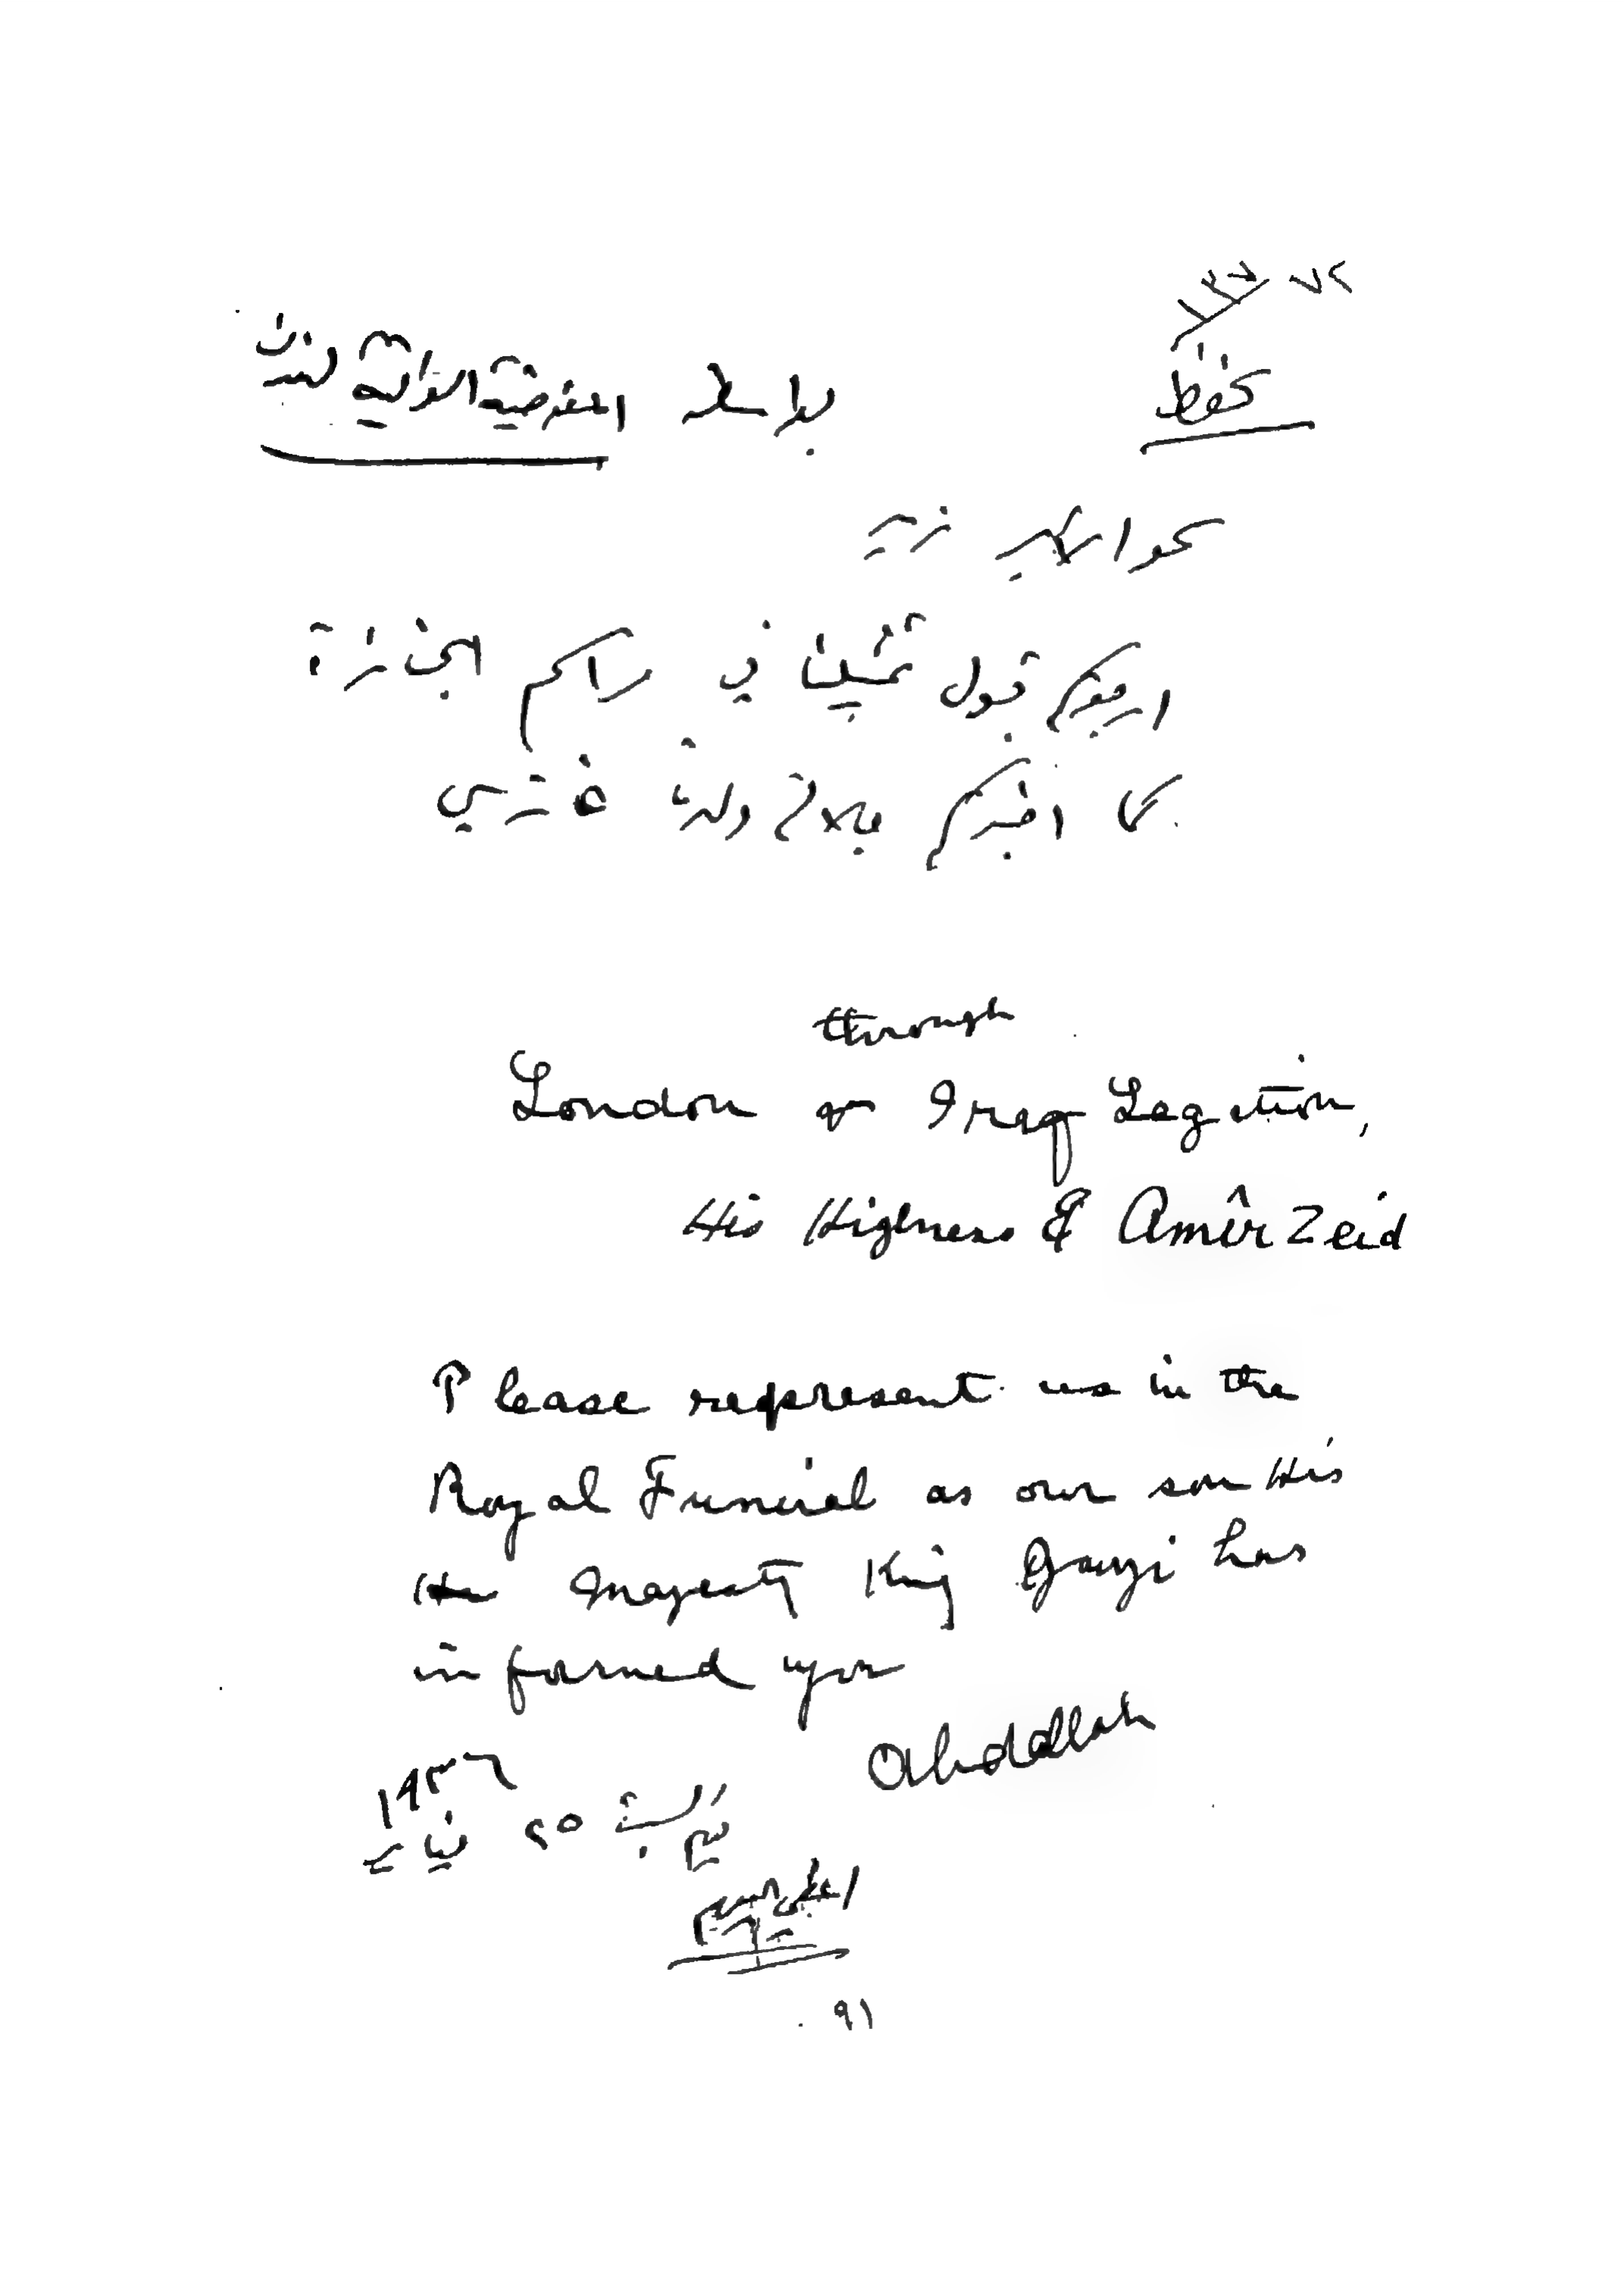 يحفظ
بواسطة المفوضية العراقية لندن
سمو الامير زيد
ارجوكم قبول تمثيلنا في مراسم الجنازة
كما اخبركم جلالة ولدنا غازي
through
London or Iraq Legation,
His Highness Amîr Zeid
Please represent us in the
Royal Funeral as our son His
Majesty King Gazi has
informed you
Abdallah
١٩٣٦
٢٥
٩١